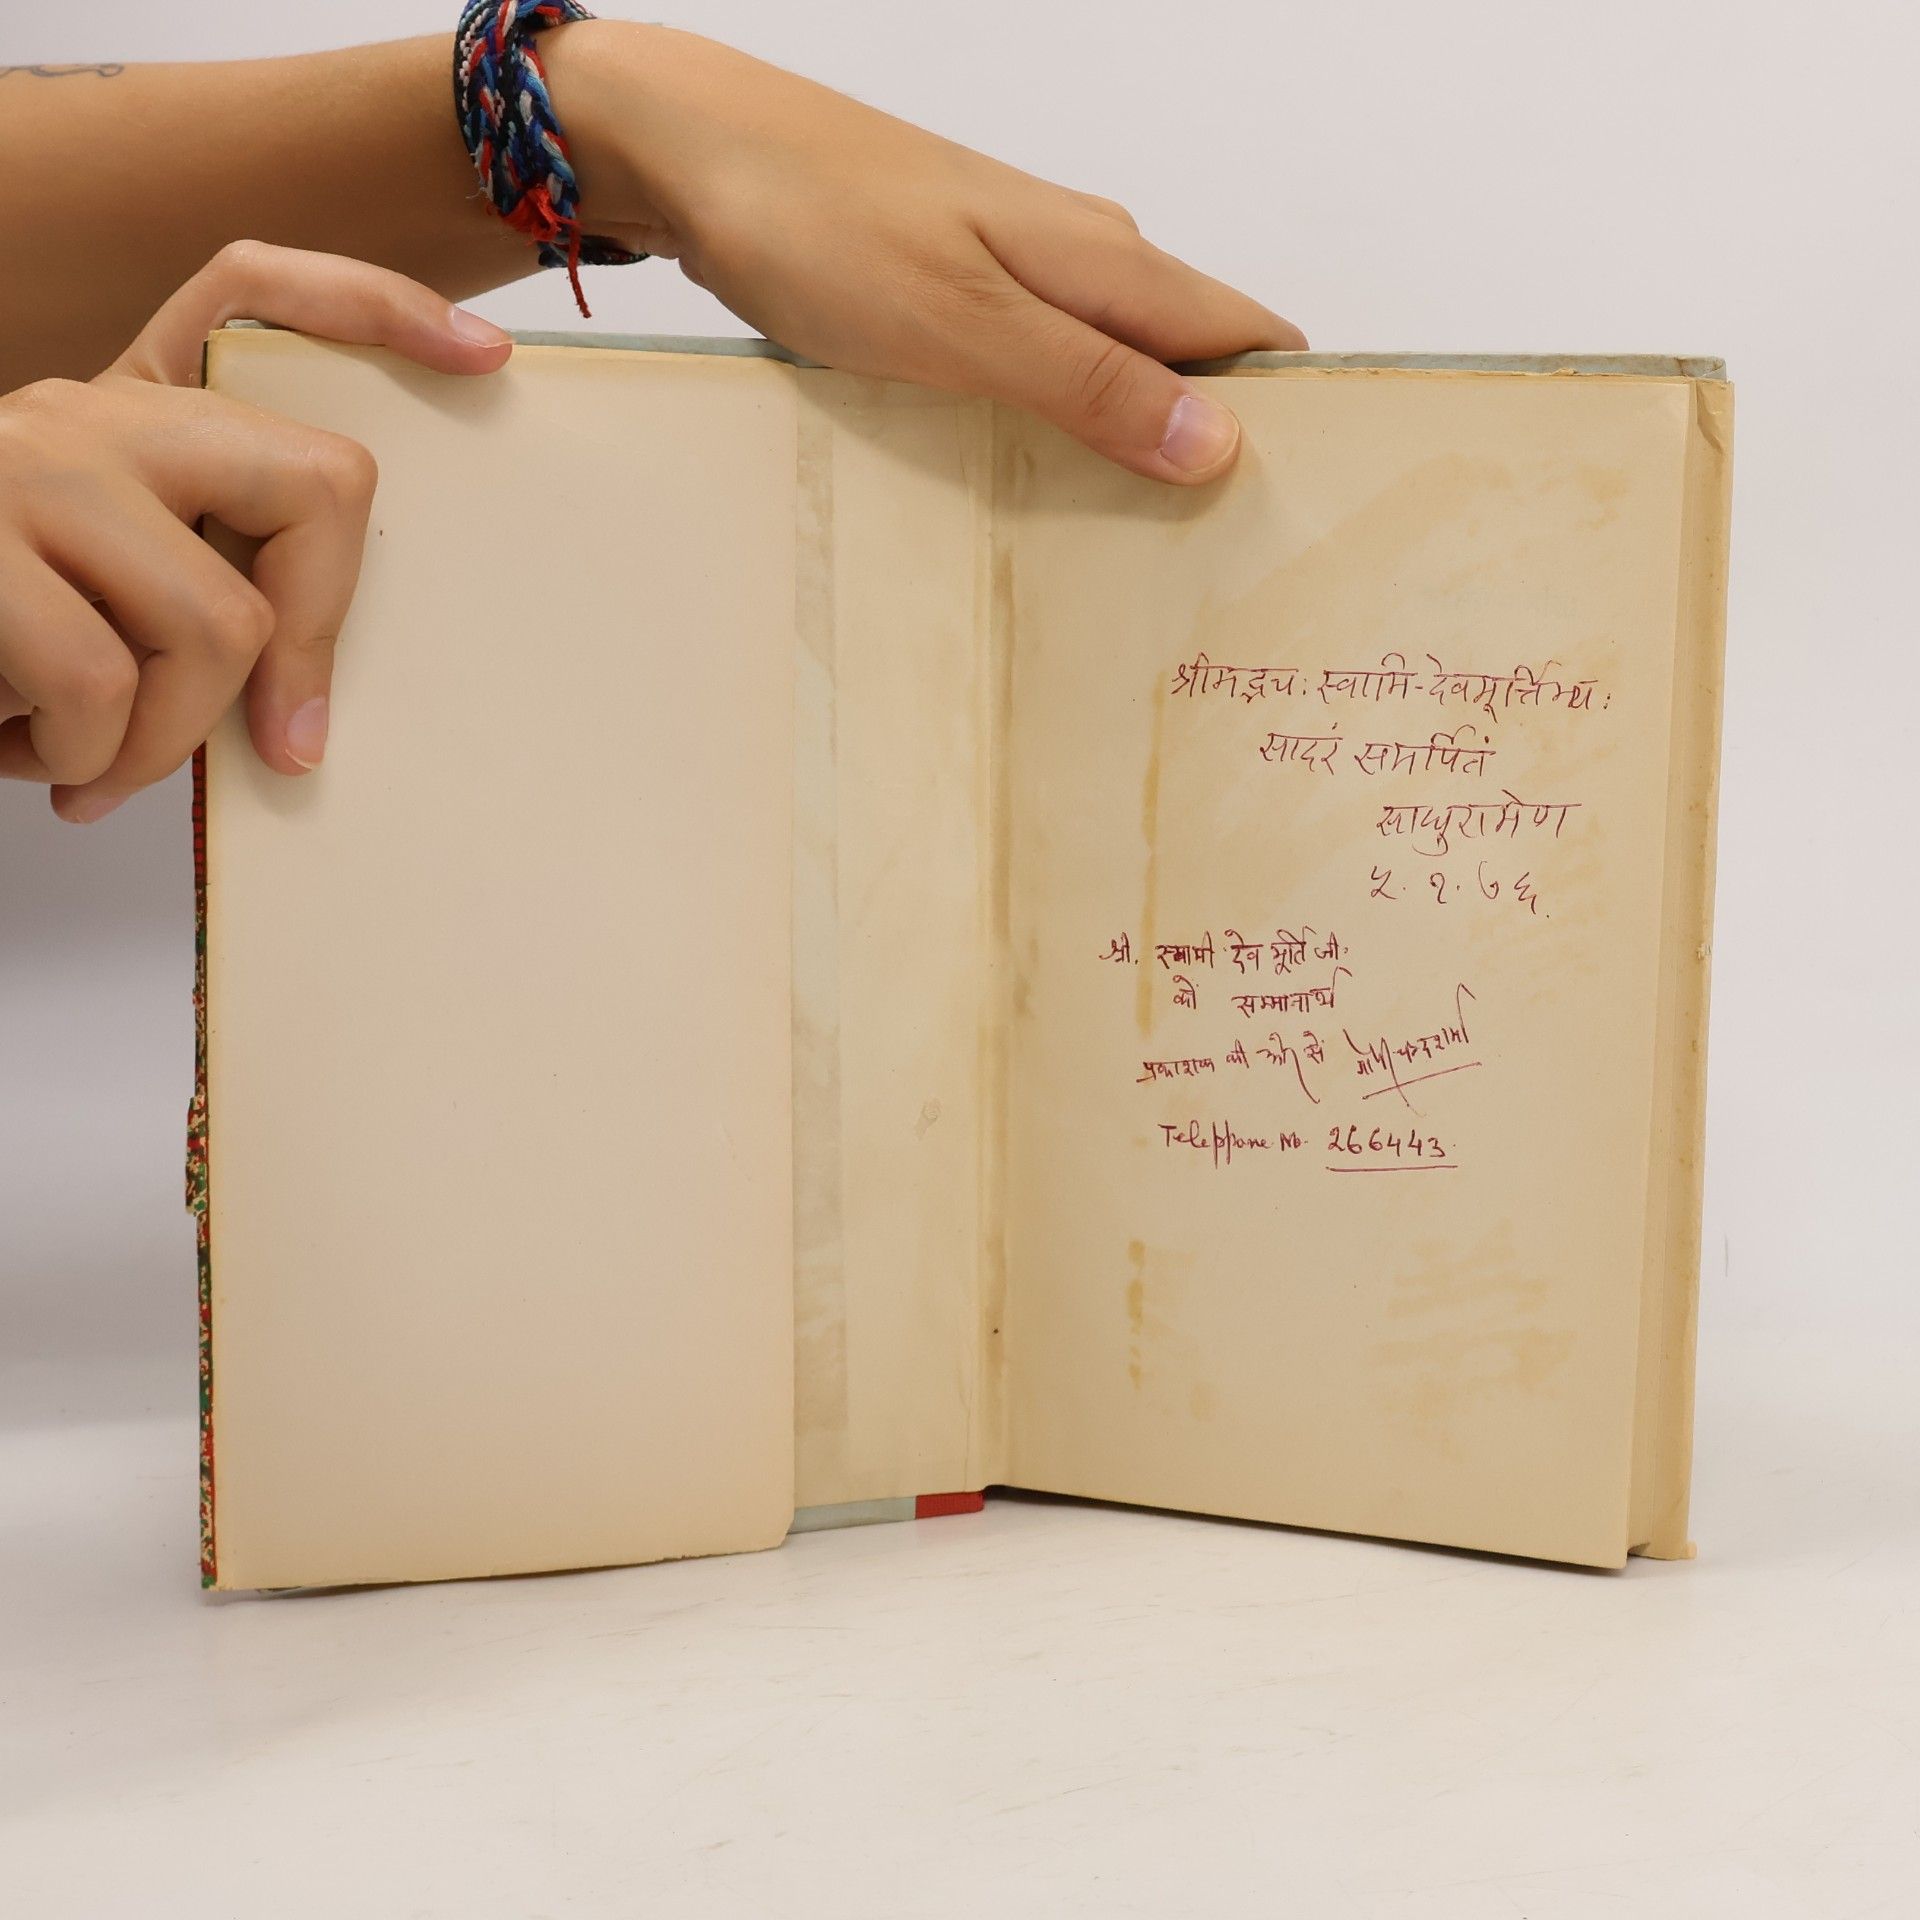 श्रीमद्भ्यः स्वामि-देवमूर्त्तिभ्यः
सादरं समर्पितं
साधुरामेण
५. १. ७६.
श्री. स्वामी देव मूर्ति जी.
को सम्मानार्थ
प्रकाशक की ओर से गोपीचन्द्र शर्मा
Telephone No. 266443.